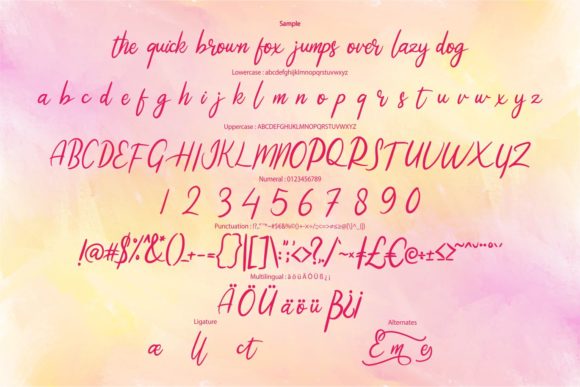 Sample
the quick brown fox jumps over lazy dog
Lowercase : abcdefghijklmnopqrstuvwxyz
a b c d e f g h i j k l m n o p q r s t u v w x y z
Uppercase : ABCDEFGHIJKLMNOPQRSTUVWXYZ
ABCDEFGHIJKLMNOPQRSTUVWXYZ
Numeral : 0123456789
1 2 3 4 5 6 7 8 9 0
Punctuation :
!@#$%^&*()_+-={}|[]\:";'<>?,./
Multilingual : ä ö ü Ä Ö Ü ß ¿ ¡
ÄÖÜ äöü ß¿¡
Ligature Alternates
æ ct E m e